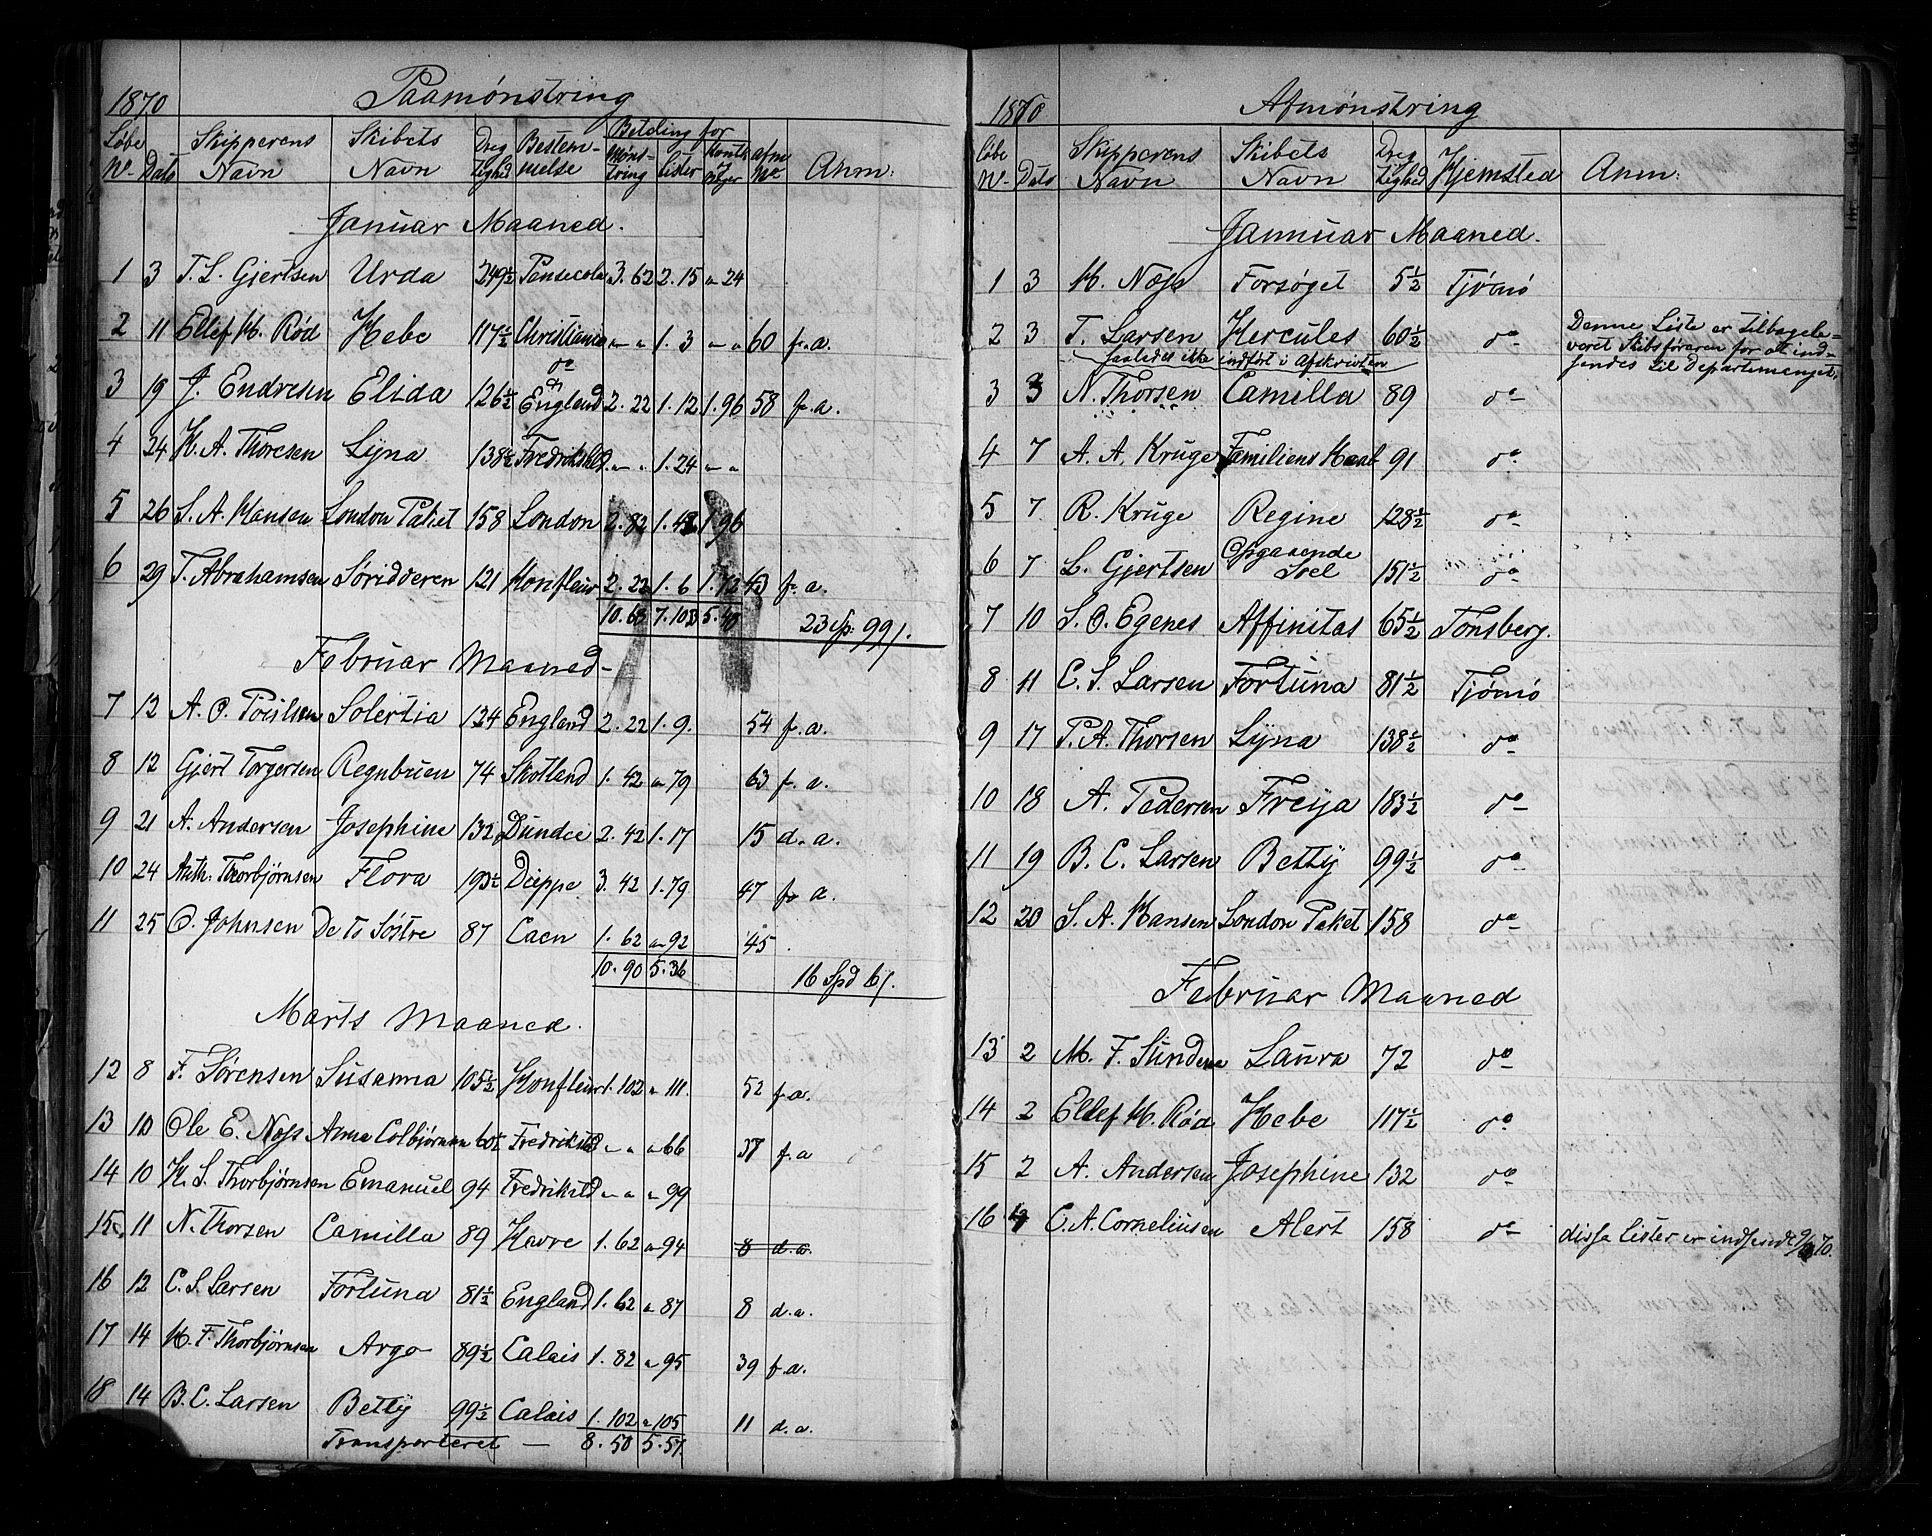 1870 Paamønstring
Løbe No. Dato Skipperens Navn Skibets Navn Dreg tighed Bestem- melse Betaling for Møns- tring Lister afm No. Anm:
Januar Maaned.
1 3 T. L. Gjertsen Urda 249½ Pensecola 3. 62 2. 15 " 24
2 11 Ellef H. Rød Hebe 117½ Christiania " " 1. 3 " " 60 f. a.
3 19 J. Endresen Elida 126½ do England 2. 22 1. 12 1. 96 58 f. a.
4 24 H. A. Thoresen Lyna 138½ Fredrikshld " " 1. 24 " "
5 26 S. A. Hansen London Paket 158 London 2. 82 1. 43 1 96
6 29 T. Abrahamsen Søridderen 121 Honfleur 2. 22 1. 6 1. 72 43 f. a.
10. 68 7. 103 5. 48 23 Sp: 99 /.
Februar Maaned-
7 12 A. O. Solertia 124 England 2. 22 1. 9. 54 f. a.
8 12 Gjert Torgersen Regnbuen 74 Skotland 1. 42 " 79 63 f. a.
9 21 A. Andersen Josephine 132 Dundee 2. 42 1. 17 15 d. a.
10 24 Anth. Thorbjørnsen Flora 193½ Dieppe 3. 42 1. 79 47 f. a.
11 25 O. Johnsen De to Søstre 87 Caen 1. 62 " 92 45
10. 90 5. 36 16 Spd 6 /.
Marts Maaned.
12 8 F. Sørensen Susanna 105½ Honfleur 1. 102 " 111. 52 f. a.
13 10 Ole E. Næss Anna Colbjørnsen 60½ Fredrikstad " " " 66 37 f. a
14 10 H. S. Thorbjørnsen Emanuel 94 Fredrikstd " " " 99
15 11 N. Thorsen Camilla 89 Havre 1. 62 " 94 8 d. a.
16 12 C. S. Larsen Fortuna 81½ England 1. 62 " 87 8 d. a.
17 14 H. F. Thorbjørnsen Argo 89½ Calais 1. 82 " 95 39 f. a.
18 14 B. C. Larsen Betty 99½ Calais 1. 102 " 105 11 d. a.
Transporteret — 8. 50 5. 57.
1870 Afmønstring
Løbe No. Dato Skipperens Navn Skibets Navn Dreg tighed Hjemsted Anm:
Jannuar Maaned.
1 3 H. Næss Forsøget 5½ Tjømø
2 3 T. Larsen Hercules 60½ do Denne Liste er tilbagele-
veret Skibsføreren for at ind-
saaledes ikke indført i Afskriften
sendes til Departementet.
3 3 N. Thorsen Camilla 89 do
4 7 A. A. Kruge Familiens Haab 91 do
5 7 R. Kruge Regine 128½ do
6 7 L. Gjertsen Opgaaende Soel 151½ do
7 10 S. O. Egenes Affinitas 65½ Tønsberg.
8 11 C. S. Larsen Fortuna 81½ Tjømø
9 17 P. A. Thorsen Lyna 138½ do
10 18 A. Pedersen Freya 183½ do
11 19 B. C. Larsen Betty 99½ do
12 20 S. A. Hansen London Paket 158 do
Februar Maaned
13 2 M. F. Sundene Laura 72 do
14 2 Ellef H. Rød Hebe 117½ do
15 2 A. Andersen Josephine 132 do
16 C. A. Corneliusen Alert 158 do disse Lister er indsendt 70.